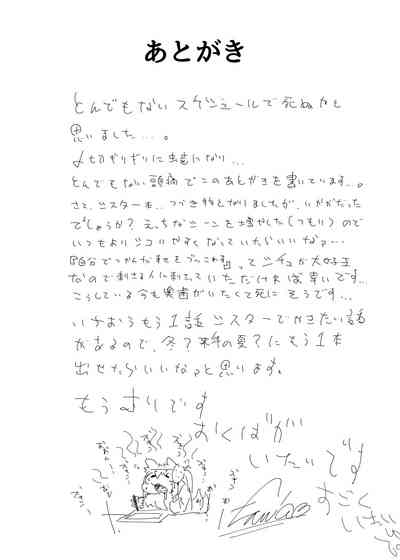 あとがき
とんでもないスケジュールで死ぬかと
思いました…。
〆切ぎりぎりに虫歯になり…
とんでもない頭痛でこのあとがきを書いています…。
さて、シスター本、つづき物となりましたが、いかがだった
でしょうか？えっちなシーンを増やした（つもり）ので
いつもよりシコいやすくなっていたらいいなっ…
って シチュが大好き
なので刺さる人に刺さっていただければ幸いです…
こうしている今も奥歯がいたくて死にそうです…
いちおうもう1話シスターでかきたい話
があるので、冬？来年の夏？にもう1本
出せたらいいなっと思ります。
もうむりです
おくばが
いたいです
すごく